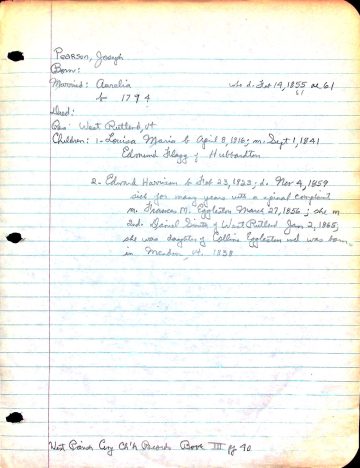 Pearson, Joseph
Born:
Married: Aurelia who d. Feb 19, 1855 ae 61
61
b 1794
Died:
Res: West Rutland, Vt
Children: 1. Louisa Maria b April 8, 1816; m. Sept 1, 1841
Edmund Flagg of Hubbardton
2. Edward Harrison b Feb 23, 1823; d. Nov 4, 1859
sick for many years with a spinal complaint
m. Frances M. Eggleston March 27, 1856; she m
2nd. Daniel Smith of West Rutland Jan 2, 1865;
she was daughter of Collins Eggleston and was born
in Mendon, Vt. 1838
West Ch'h Records Book III pg 40